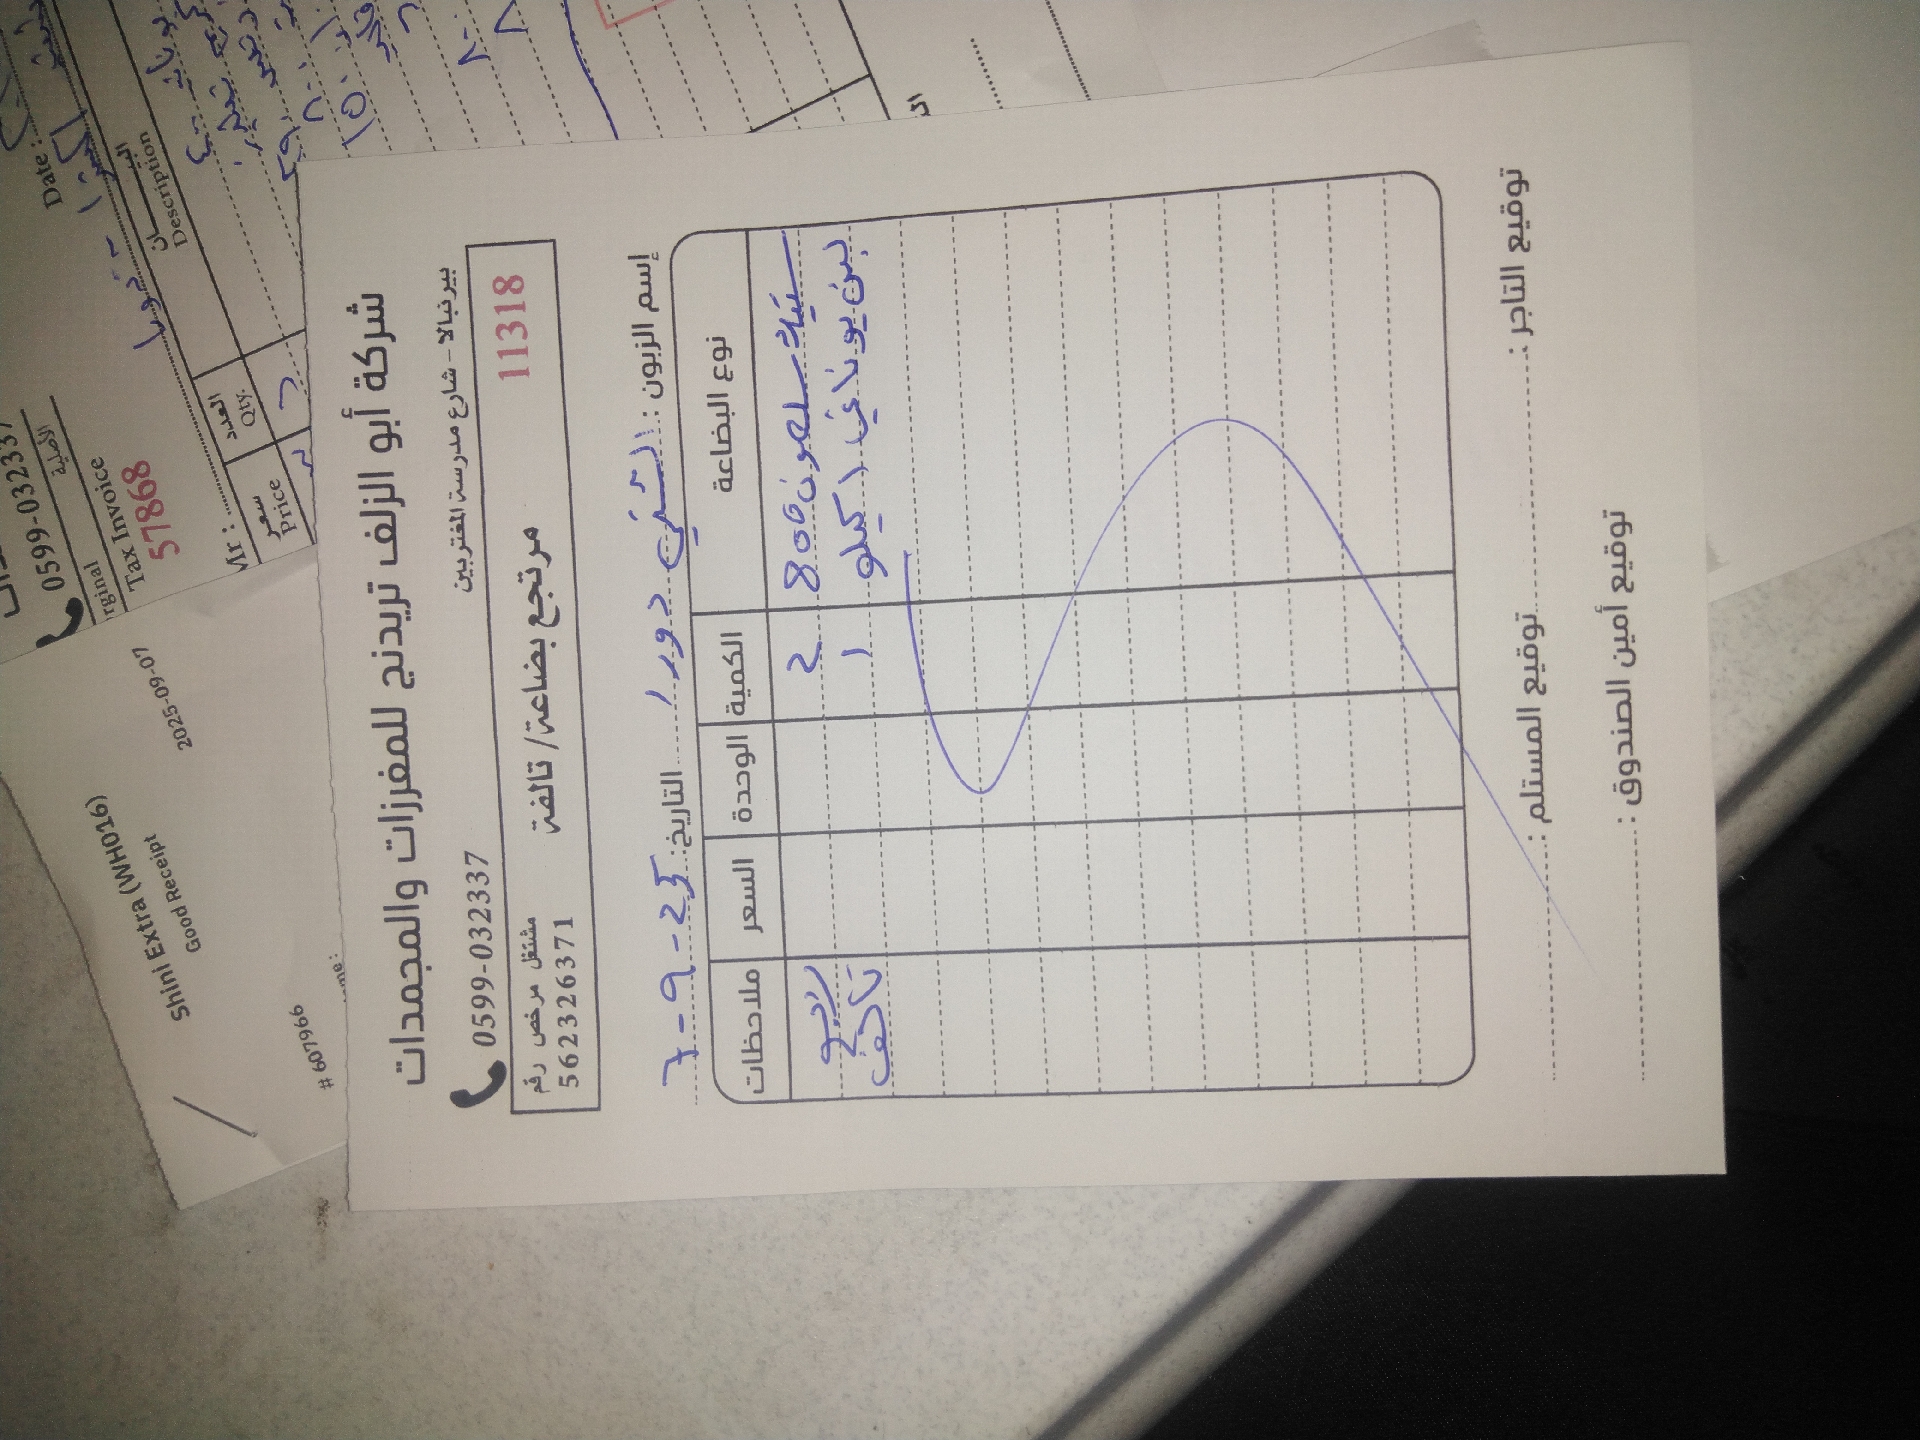 شركة أبو الزلف تريدنج للمفرزات والمجمدات
بيرنبالا - شارع مدرسة المغتربين
0599-032337
11318
مرتجع بضاعة/ تالفة
مشتغل مرخص رقم
562326371
إسم الزبون : الشني دورا
التاريخ: 7-9-25
نوع البضاعة الكمية الوحدة السعر ملاحظات
ستيك سلمون 800 2
جبن يوناني 1 كيلو 1 تالف
توقيع التاجر :
توقيع المستلم :
توقيع أمين الصندوق :
0599-032337
الأصلية
Tax Invoice
57868
Date :
Description
العدد
Qty.
سعر
Price
Shini Extra (WH016)
Good Receipt
2025-09-07
# 607966